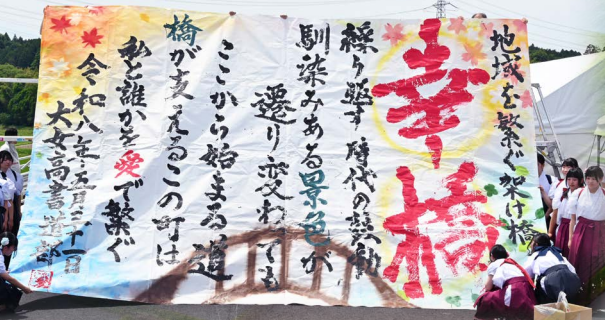 地域を繋ぐ架け橋
幸橋
繰り返す時代の鼓動
馴染みある景色が
遷り変わっても
ここから始まる道
橋が支えるこの町は
私と誰かを愛で繋ぐ
令和八年五月三十一日
大女高書道部